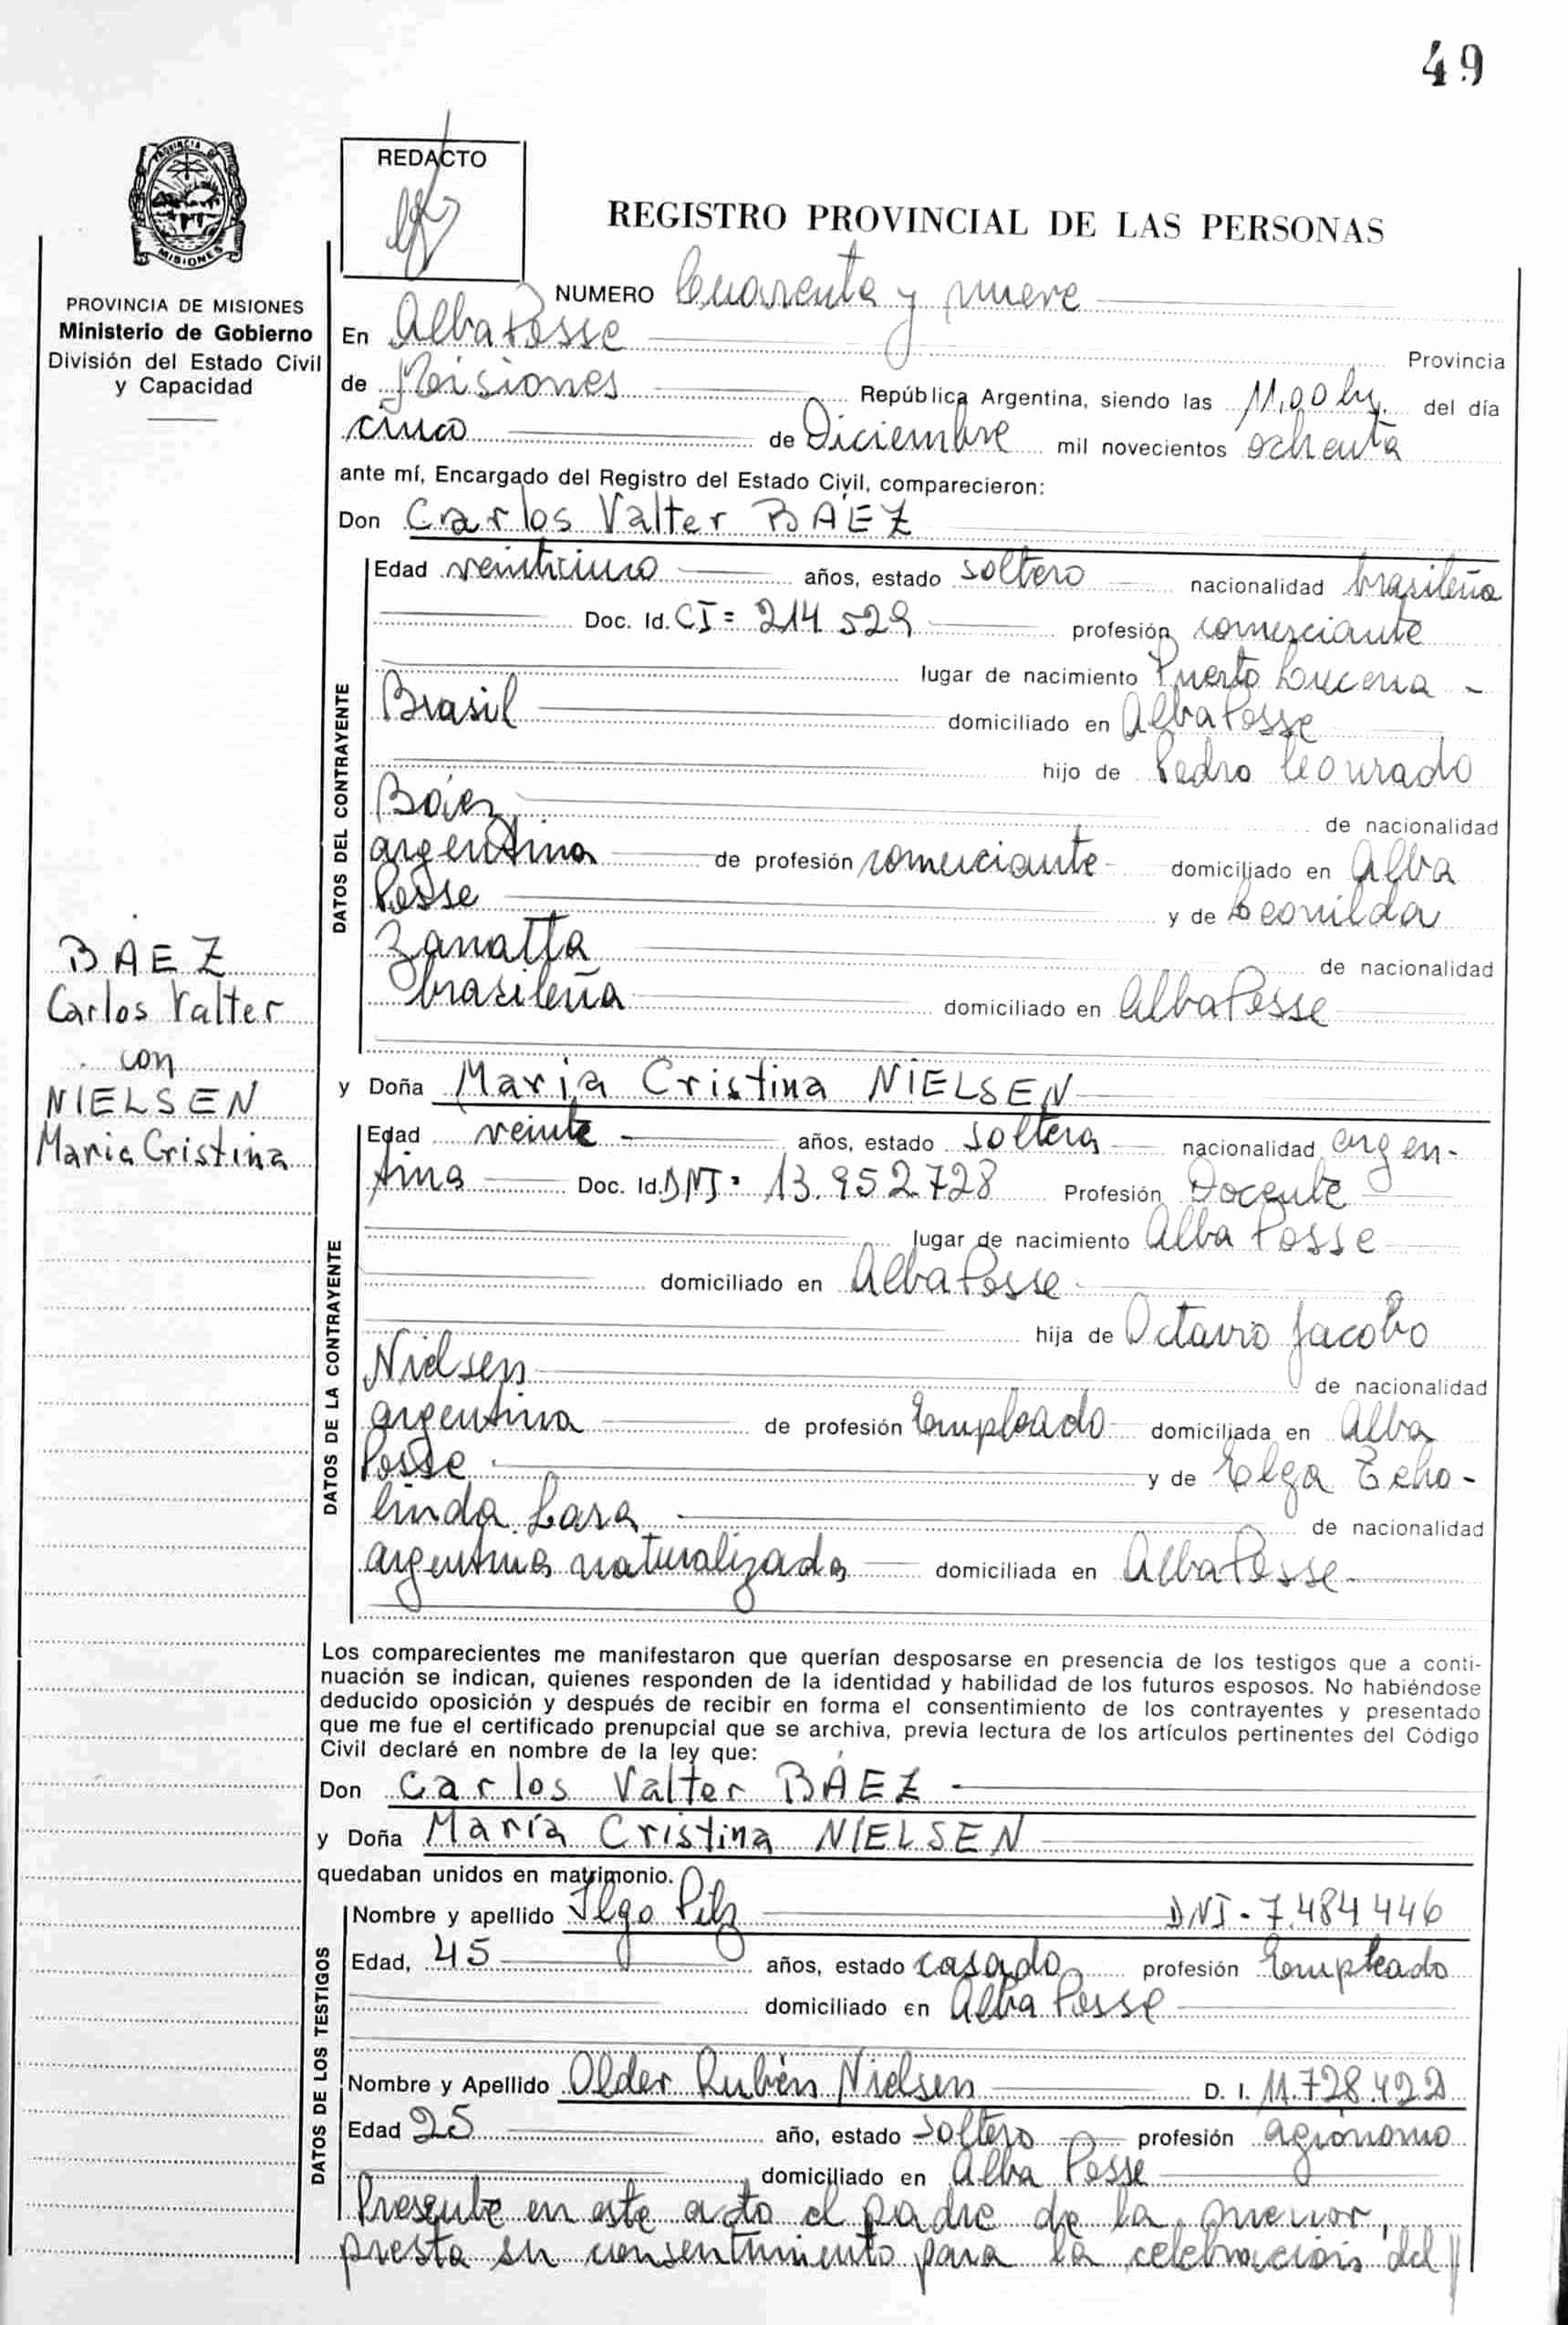 49
PROVINCIA DE MISIONES
MISIONES
PROVINCIA DE MISIONES
Ministerio de Gobierno
División del Estado Civil
y Capacidad
REDACTO
REGISTRO PROVINCIAL DE LAS PERSONAS
NUMERO Cuarenta y nueve
En Alba Posse Provincia
de Misiones República Argentina, siendo las 11,00 hs. del día
cinco de Diciembre mil novecientos ochenta
ante mí, Encargado del Registro del Estado Civil, comparecieron:
Don Carlos Valter BÁEZ
DATOS DEL CONTRAYENTE
Edad veinticinco años, estado soltero nacionalidad brasileña
Doc. Id. CI= 214.529 profesión comerciante
lugar de nacimiento Puerto Lucena -
Brasil domiciliado en Alba Posse
hijo de Pedro Conrado
Báez de nacionalidad
argentina de profesión comerciante domiciliado en Alba
Posse y de Leonilda
Zanatta de nacionalidad
brasileña domiciliado en Alba Posse
BAEZ
Carlos Valter
con
NIELSEN
Maria Cristina
y Doña María Cristina NIELSEN
DATOS DE LA CONTRAYENTE
Edad veinte años, estado soltera nacionalidad argen-
tina Doc. Id. DNI: 13.952.728 Profesión Docente
lugar de nacimiento Alba Posse
domiciliado en Alba Posse
hija de Octavio Jacobo
Nielsen de nacionalidad
argentina de profesión Empleado domiciliada en Alba
Posse y de Elga Teho-
linda Lara de nacionalidad
argentina naturalizada domiciliada en Alba Posse
Los comparecientes me manifestaron que querían desposarse en presencia de los testigos que a conti-
nuación se indican, quienes responden de la identidad y habilidad de los futuros esposos. No habiéndose
deducido oposición y después de recibir en forma el consentimiento de los contrayentes y presentado
que me fue el certificado prenupcial que se archiva, previa lectura de los artículos pertinentes del Código
Civil declaré en nombre de la ley que:
Don Carlos Valter BÁEZ
y Doña María Cristina NIELSEN
quedaban unidos en matrimonio.
DATOS DE LOS TESTIGOS
Nombre y apellido Ilgo Pilz DNI- 7.484.446
Edad, 45 años, estado casado profesión Empleado
domiciliado en Alba Posse
Nombre y Apellido Older Rubén Nielsen D. I. 11.728.422
Edad 25 año, estado soltero profesión agrónomo
domiciliado en Alba Posse
Presente en este acto el padre de la menor,
presta su consentimiento para la celebración del //